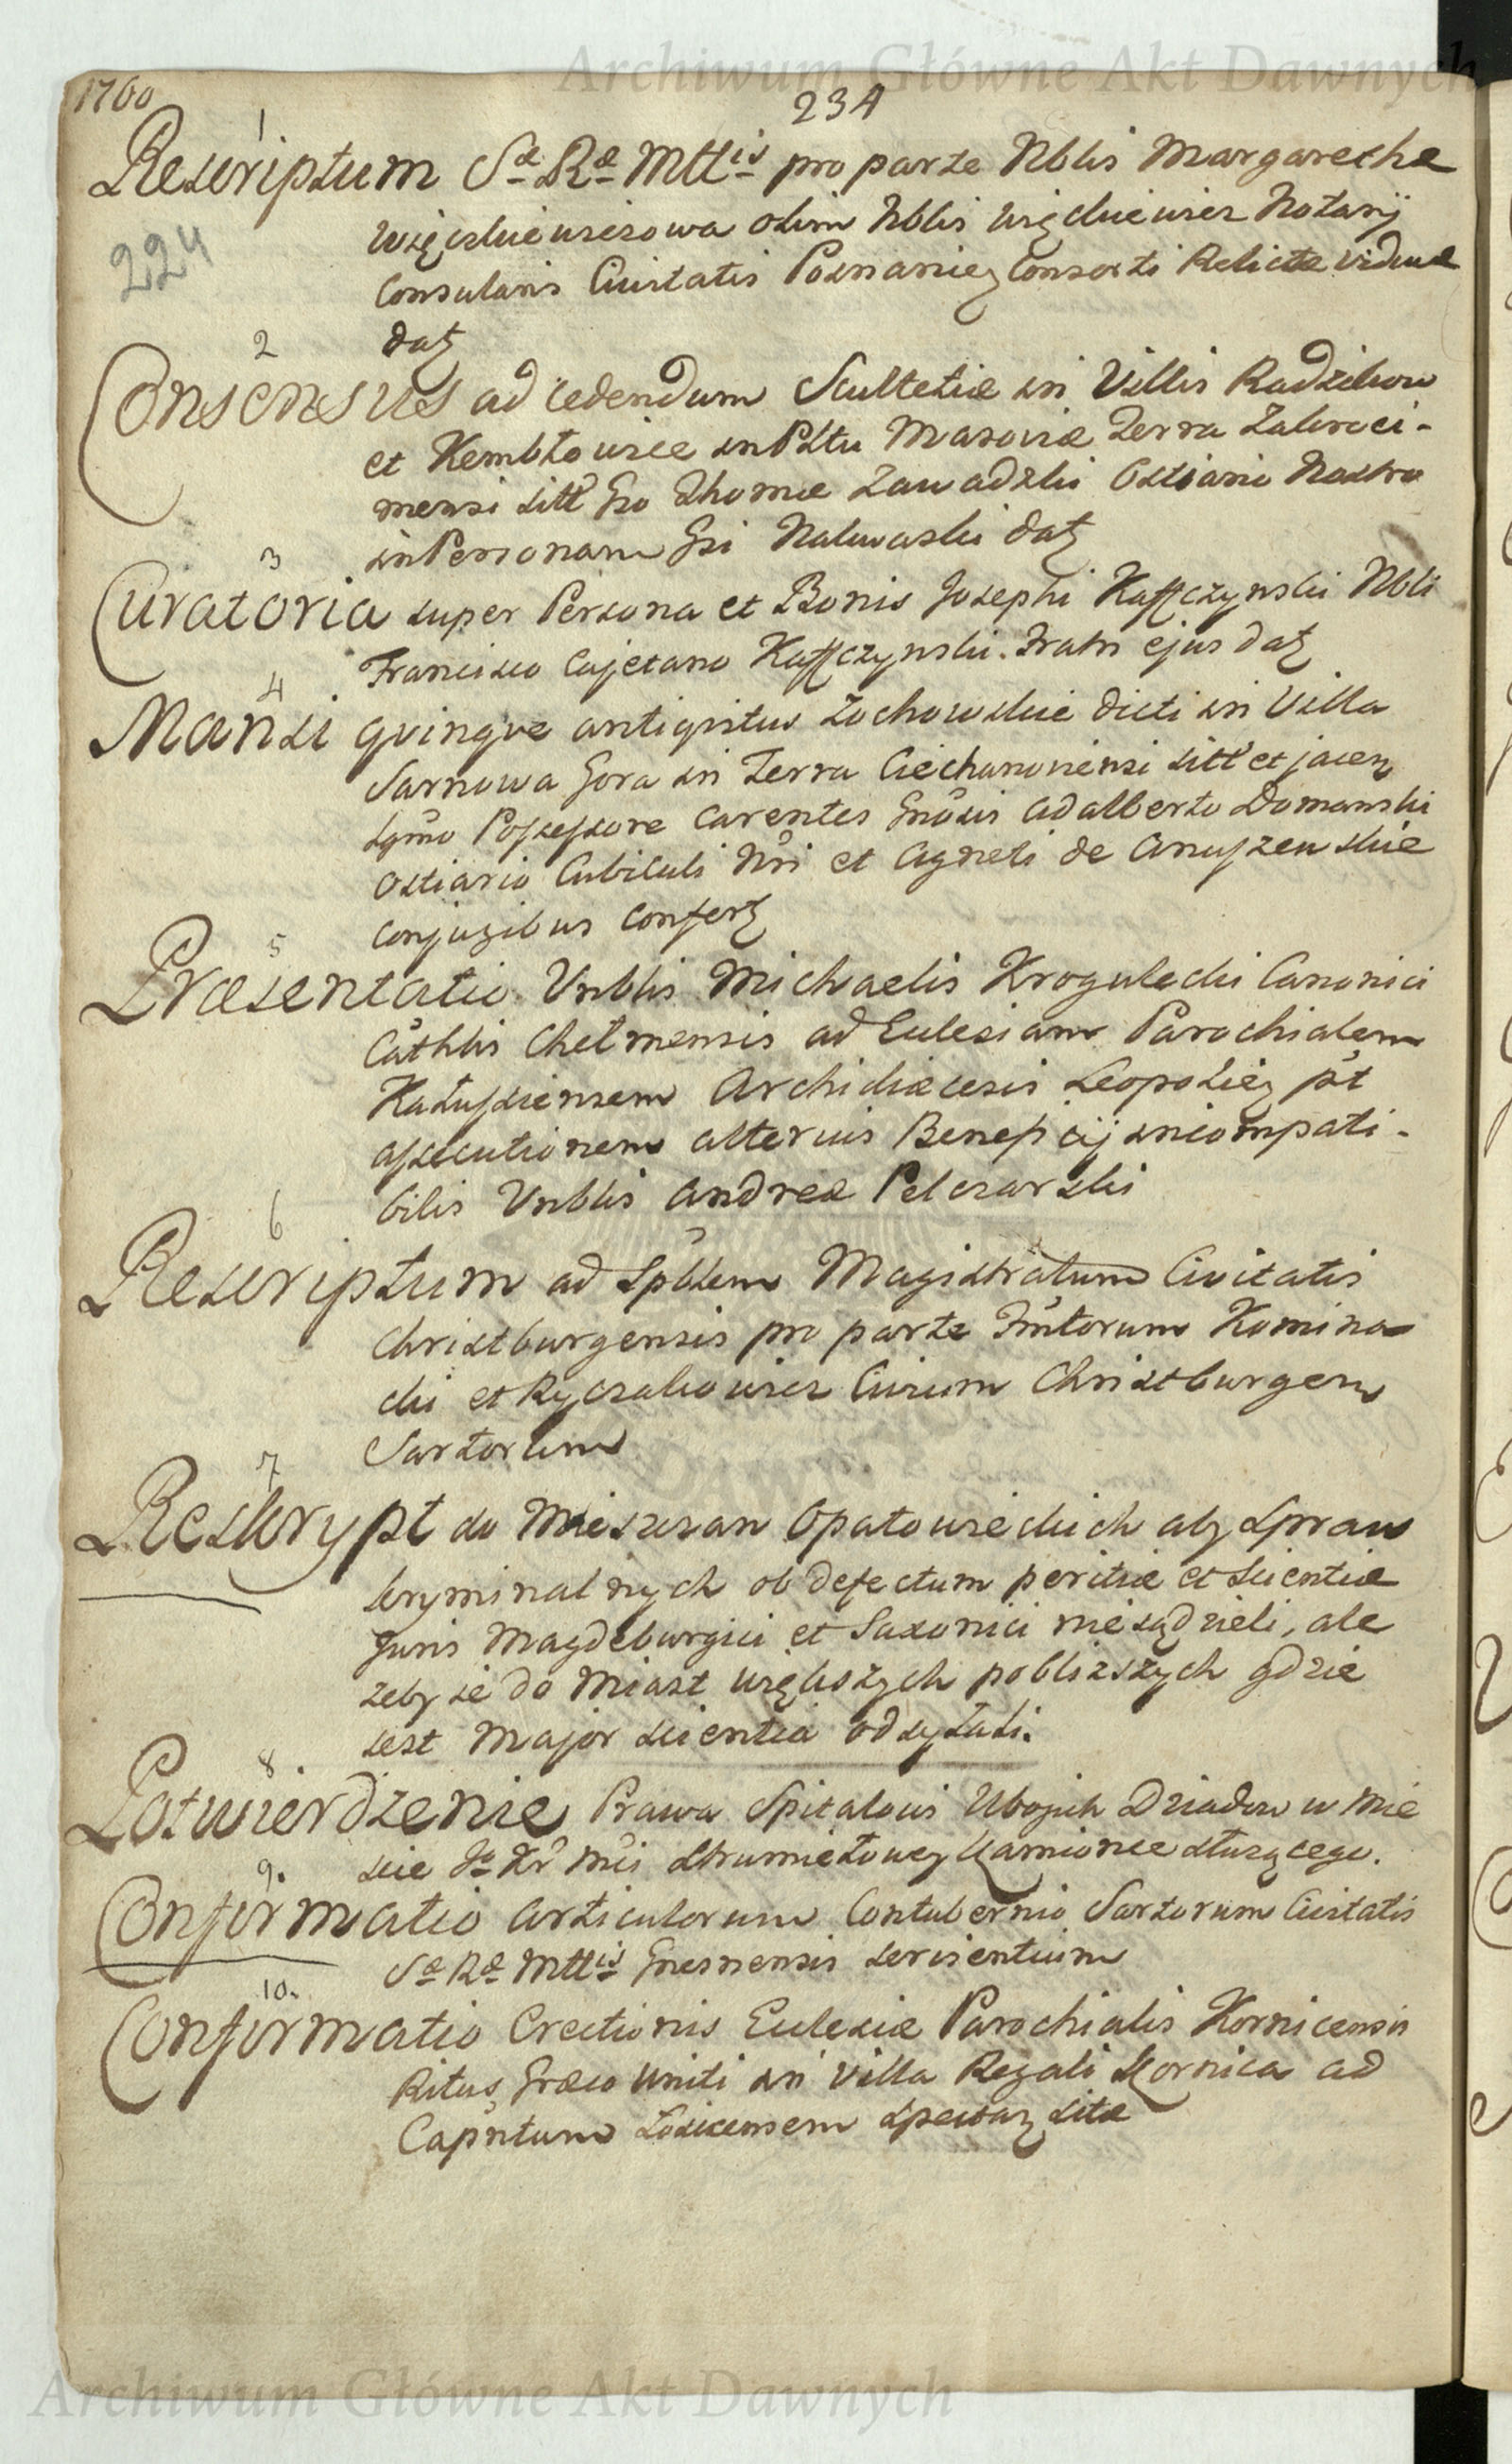 Archiwum Główne Akt Dawnych
1760
234
1
Rescriptum Sæ Ræ Mttis pro parte Nblis Margarethæ
224
Consularis Civitatis Posnanien Consorti Relictæ Viduæ
dat
2
Consensus ad cedendum Scultetiæ in Villis Radzikow
et Kembłowice in Pltu Masoviæ Terra Zakroci-
mensi sitt Gso Thomæ Zawadzki Ostiario Nostro
in Personam Gsi Nakwaski dat
3
Curatoria super Persona et Bonis Josephi Kaffczynski Nbli
Francisco Cajetano Kaffczynski Fratri ejus dat
4
Mansi qvinqve antiqvitus Żochowskie dicti in Villa
Sarnowa Gora in Terra Ciechanoviensi sitt et jacen
Possessore carentes Gnosis Adalberto Domanski
Ostiario Cubiculi Nri et Agneti de Anuszewskie
Conjugibus confert
5
Præsentatio Vnblis Michaelis Krogulecki Canonici
Cathlis Chełmensis ad Ecclesiam Parochialem
Kałussiensem Archidiæcesis Leopolien pt
assecutionem alterius Beneficij incompati-
bilis Vnblis Andreæ Pelczarski
6
Rescriptum ad Spblem Magistratum Civitatis
Christburgensis pro parte Fmtorum Komina
cki et Ryczakowicz Civium Christburgen
Sartorum
7
Reskrypt do Mieszczan Opatowieckich aby spraw
kryminalnych ob defectum peritiæ et scientiæ
Juris Magdeburgici et Saxonici niesądzieli, ale
zeby ie do Miast większych pobliszszych gdzie
iest Major scientia odsyłali.
8
Potwierdzenie Prawa Spitalowi Ubogich Dziadow w Mie
scie Jo Kr Mci Strumiełowey Kamionce słuzącego.
9.
Confirmatio Articulorum Contubernio Sartorum Civitatis
Sæ Ræ Mttis Gnesnensis servientium
10.
Confirmatio Erectionis Ecclesiæ Parochialis Kornicensis
Ritus Græco Uniti in Villa Regali Kornica ad
Capntum Łosicensem spectan sitæ
Archiwum Główne Akt Dawnych